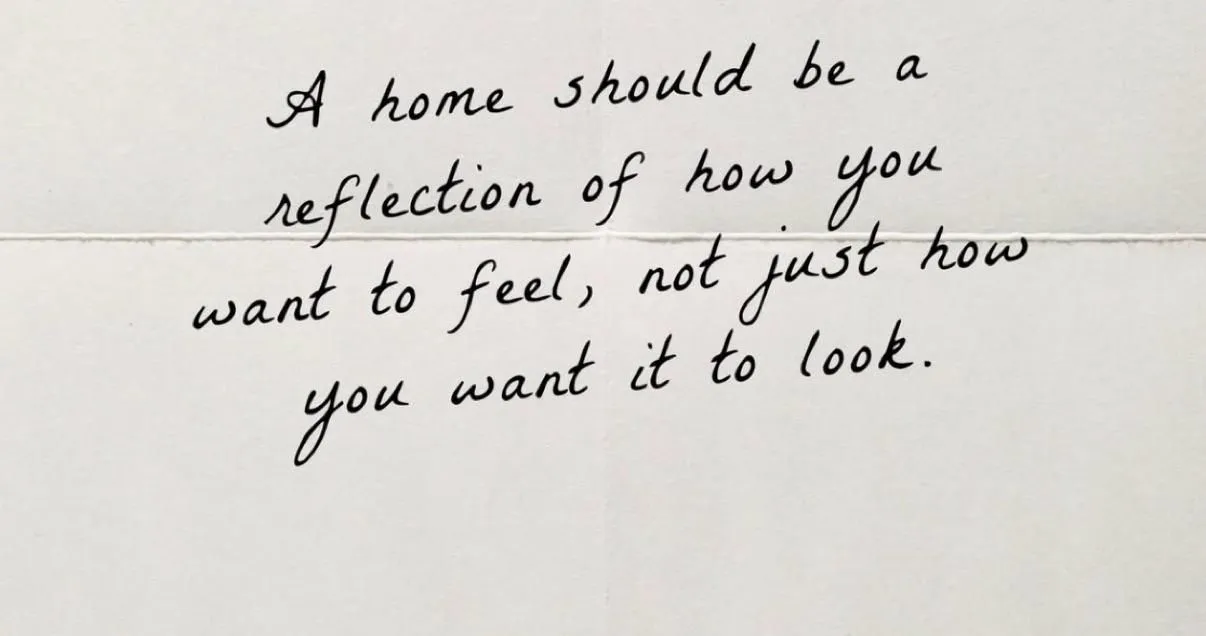 A home should be a
reflection of how you
want to feel, not just how
you want it to look.